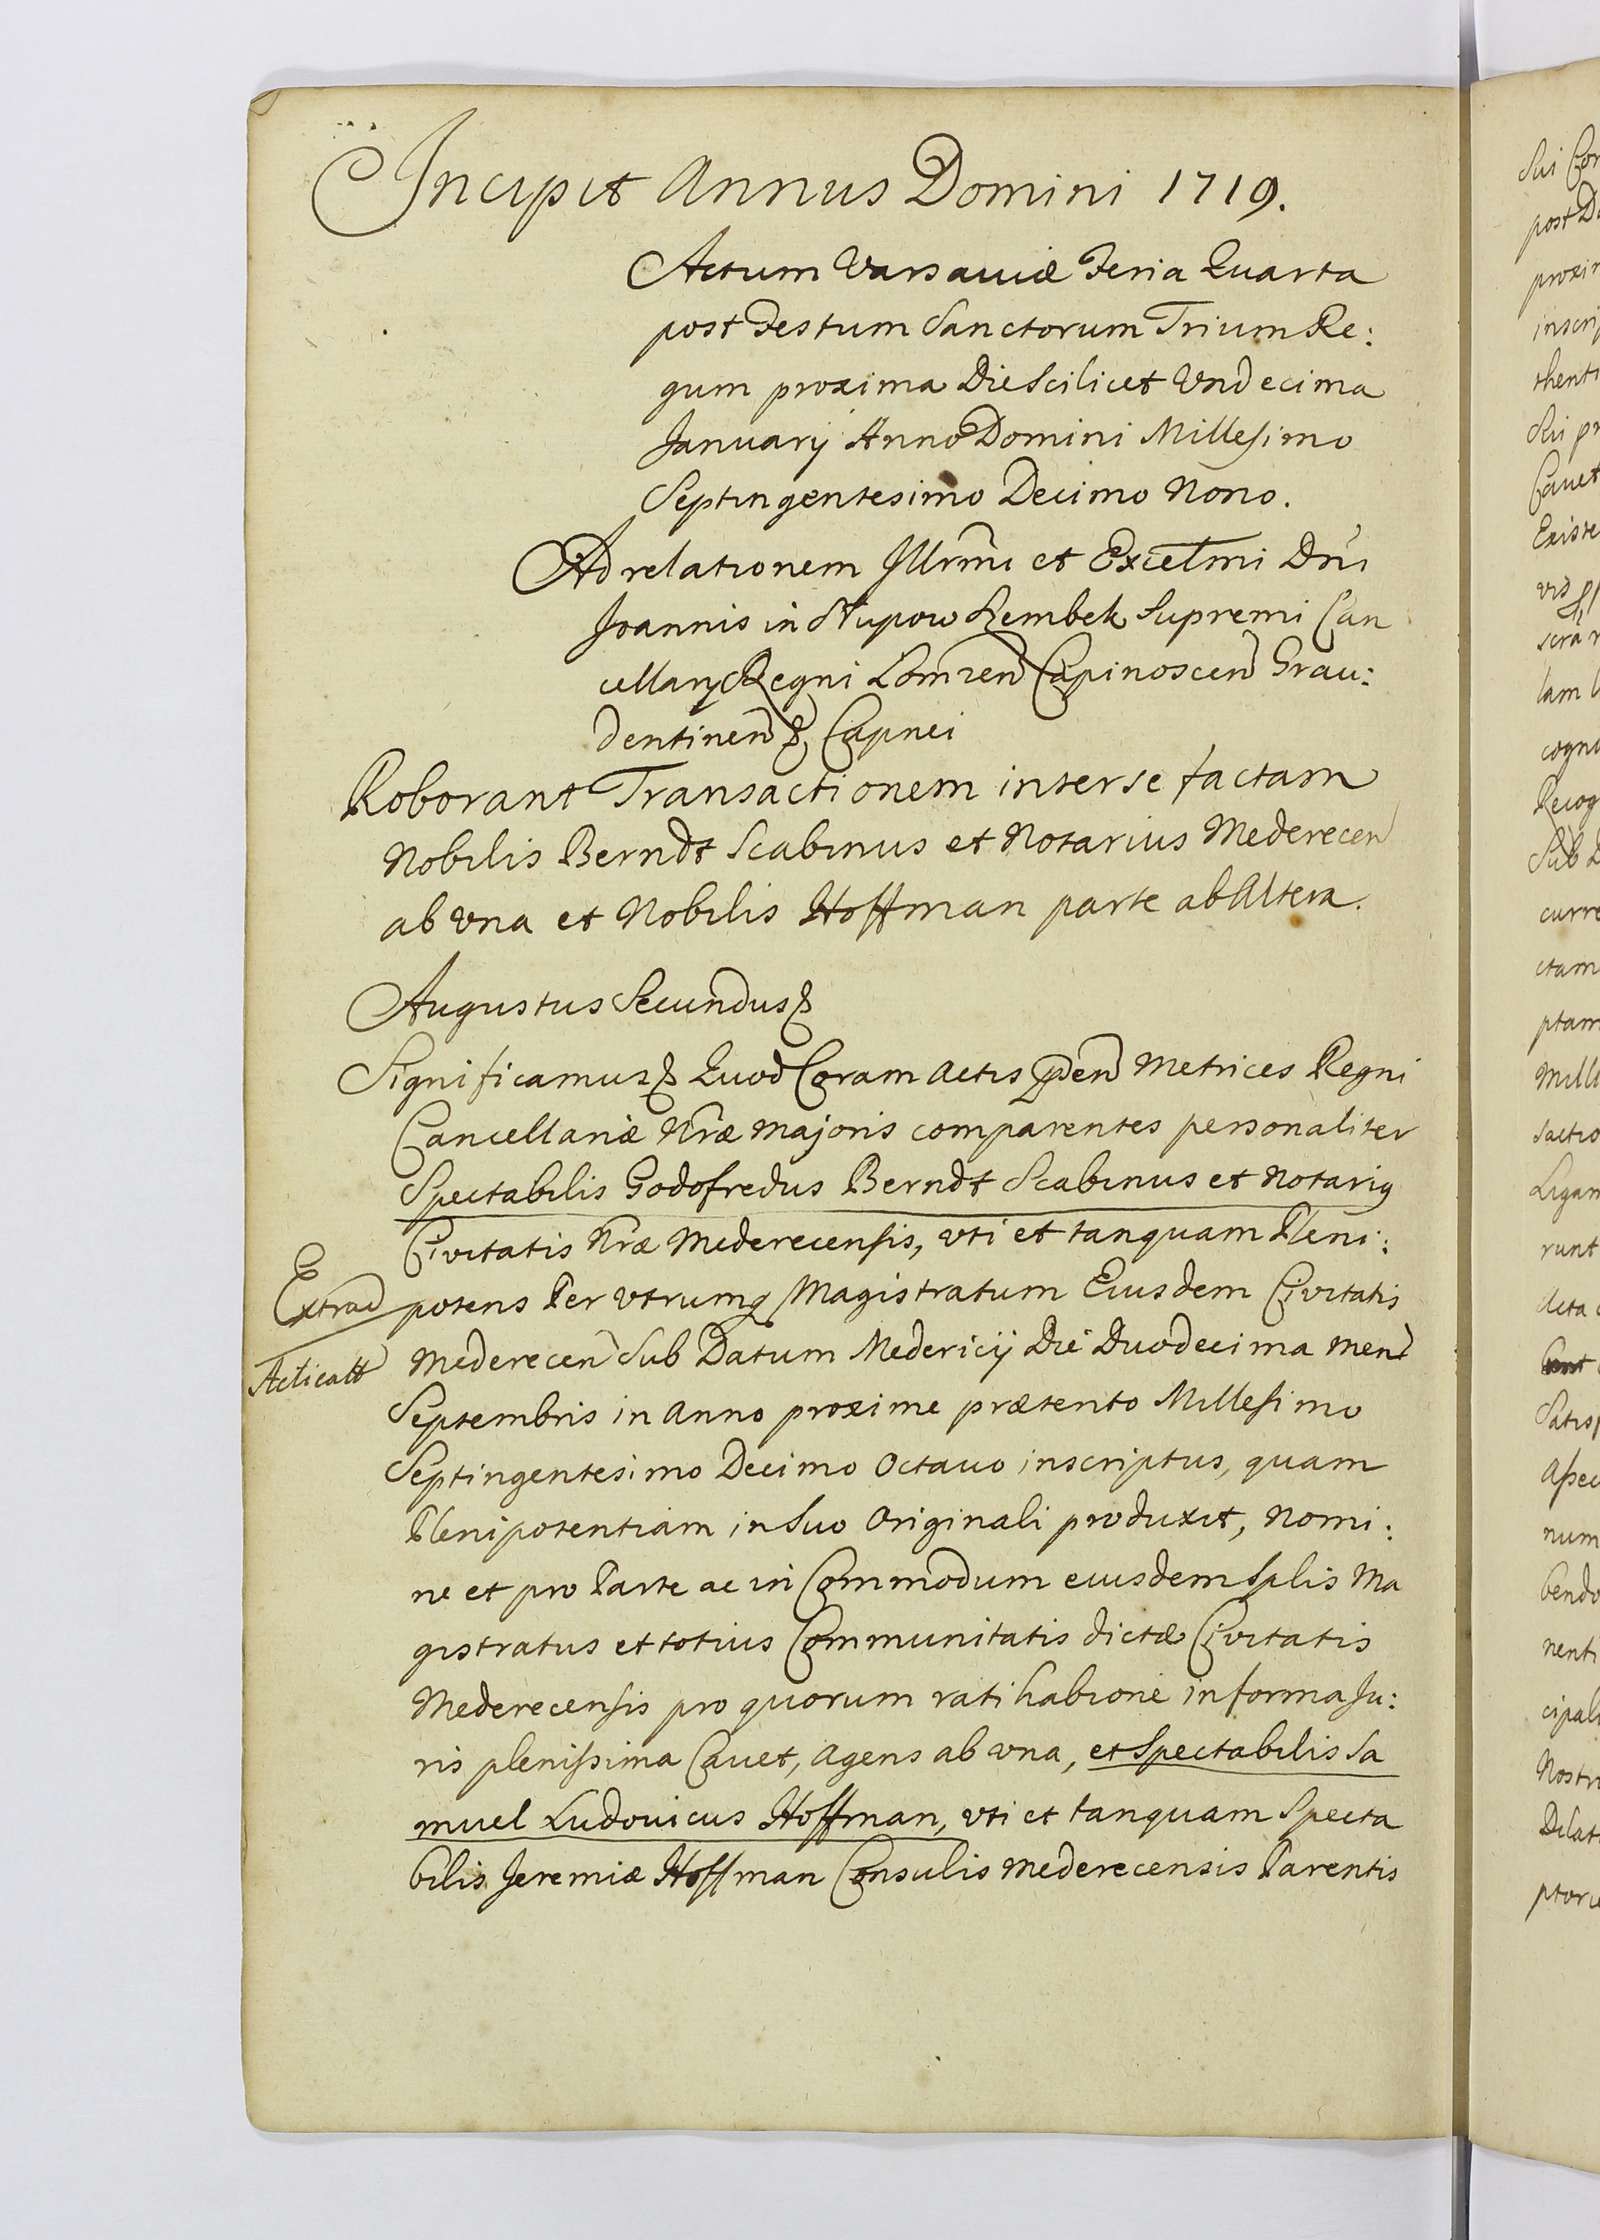 Incipit Annus Domini 1719.
Actum Varsaviæ Feria Quarta
post Festum Sanctorum Trium Re:
gum proxima Die Scilicet Vndecima
Januarij Anno Domini Millesimo
Septingentesimo Decimo Nono.
Ad relationem Illrmi et Excelmi Dni
Joannis in Słupow Szembek Supremi Can
cellarij Regni Lomzen Capinoscen Grau:
dentinen & Capnei
Roborant Transactionem inter se factam
Nobilis Berndt Scabinus et Notarius Mederecen
ab vna et Nobilis Hoffman parte ab Altera.
Augustus Secundus &
Significamus & Quod Coram Actis pñen Metrices Regni
Cancellariæ Nræ Majoris comparentes personaliter
Spectabilis Godofredus Berndt Scabinus et Notarig
Civitatis Nræ Mederecensis, vti et tanquam Pleni:
potens Per vtrumq Magistratum Eiusdem Civitatis
Mederecen Sub Datum Medericij Die Duodecima Mens
Septembris in Anno proxime prætento Millesimo
Septingentesimo Decimo Octauo inscriptus, quam
Plenipotentiam in Suo Originali produxit, Nomi:
ne et pro Parte ac in Commodum eiusdem Splis Ma
gistratus et totius Communitatis dictæ Civitatis
Mederecensis pro quorum ratihabione in forma Ju:
ris plenissima Cauet, Agens ab vna, et Spectabilis Sa
muel Ludouicus Hoffman, vti et tanquam Specta
bilis Jeremiæ Hoffman Consulis Mederecensis Parentis
Extrad
Acticatt
Sui Con
post Do
proxim
inscrip
thenti
Sui pr
Cauet
Existe
vid
scra r
lam l
cogno
Recog
Sub D
curre
ctam
ptam
Mille
sactio
Ligam
runt
Acta c
Satis
Assec
num
bendo
nenti
cipali
Nostr
Dilat
ptoru